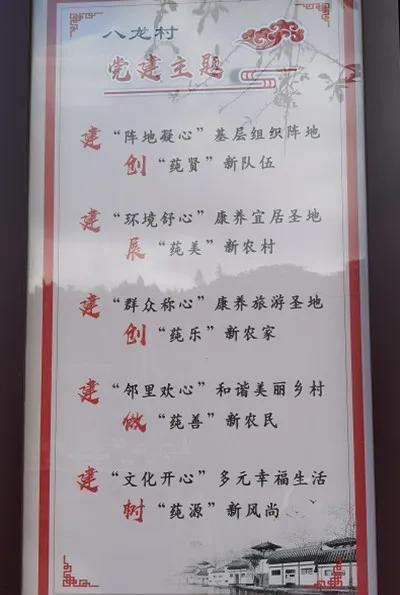 八龙村
党建主题
建“阵地凝心”基层组织阵地
创“莼贤”新队伍
建“环境舒心”康养宜居圣地
展“莼美”新农村
建“群众称心”康养旅游圣地
创“莼乐”新农家
建“邻里欢心”和谐美丽乡村
做“莼善”新农民
建“文化开心”多元幸福生活
树“莼源”新风尚